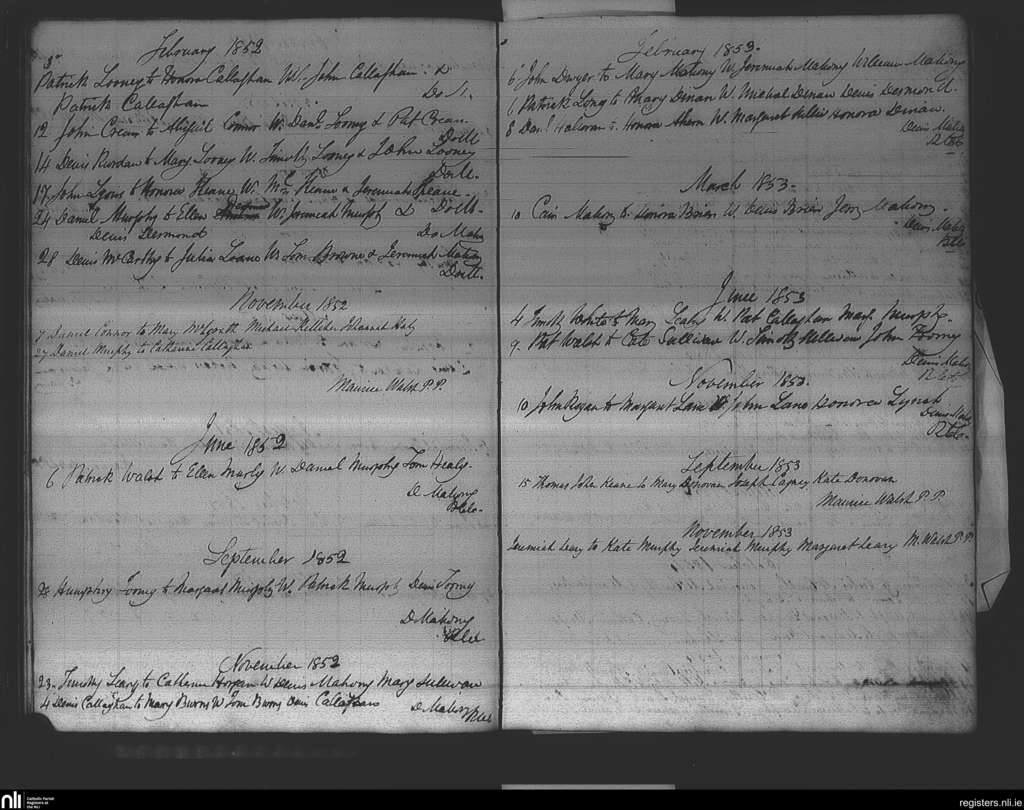 February 1852
3rd
Patrick Looney to Honora Callaghan Ws. John Callaghan &
Patrick Callaghan Do
12 John Crean to Connor Ws. Danl. Looney & Pat Crean
Do
14 Denis Riordan to Mary Looney W. Timothy Looney & John Looney
Do
17 John Lyons to Honora Keane W. Wm. Keane & Jeremiah Keane
24 Daniel Murphy to Ellen Desmond Ws. Jeremiah Murphy & Do
Denis Desmond D. Mahony
28 Denis McCarthy to Julia Loane Ws Tom Browne & Jeremiah Mahony
Do
November 1852
7 Daniel Connor to Mary Michael Kelleher Johannah Katy
27 Daniel Murphy to Catharine Callaghan
Maurice Walsh P.P.
June 1852
6 Patrick Walsh to Ellen Murphy W. Daniel Murphy Tom Healy
D Mahony
September 1852
28 Humphrey Toomy to Margaret Murphy Ws. Patrick Murphy Denis Toomy
D Mahony
November 1852
23. Timothy Leary to Catharine Horgan W Denis Mahony Mary Sullivan
4 Denis Callaghan to Mary Burns W Tom Burns Denis Callaghan
D Mahony
February 1853.
6 John Dwyer to Mary Mahony W Jeremiah Mahony William Mahony
6 Patrick Long to Mary Dinan W. Michal Dinan Denis Desmond.
8 Danl Halloran to Honora Ahern W. Margaret Honora Dinan.
Denis Mahony
March 1853.
10 Mahony to Honora Brien W. Denis Brien Jery Mahony.
Denis Mahony
June 1853
4 White & Mary Leahy W. Pat Callaghan Mary Murphy.
9. Pat Walsh to Cate Sullivan W. Timothy Sullivan John
Denis Mahony
November 1853.
10 John Regan to Margaret Lane W. John Lane Honora Lynch
Denis Mahony
September 1853
15 Thomas John Keane to Mary Donovan Joseph Cagney Kate Donovan
Maurice Walsh P.P.
November 1853
Jeremiah Leary to Kate Murphy Jeremiah Murphy Margaret Leary M. Walsh P.P.
nli
Catholic Parish
Registers at
the NLI
registers.nli.ie